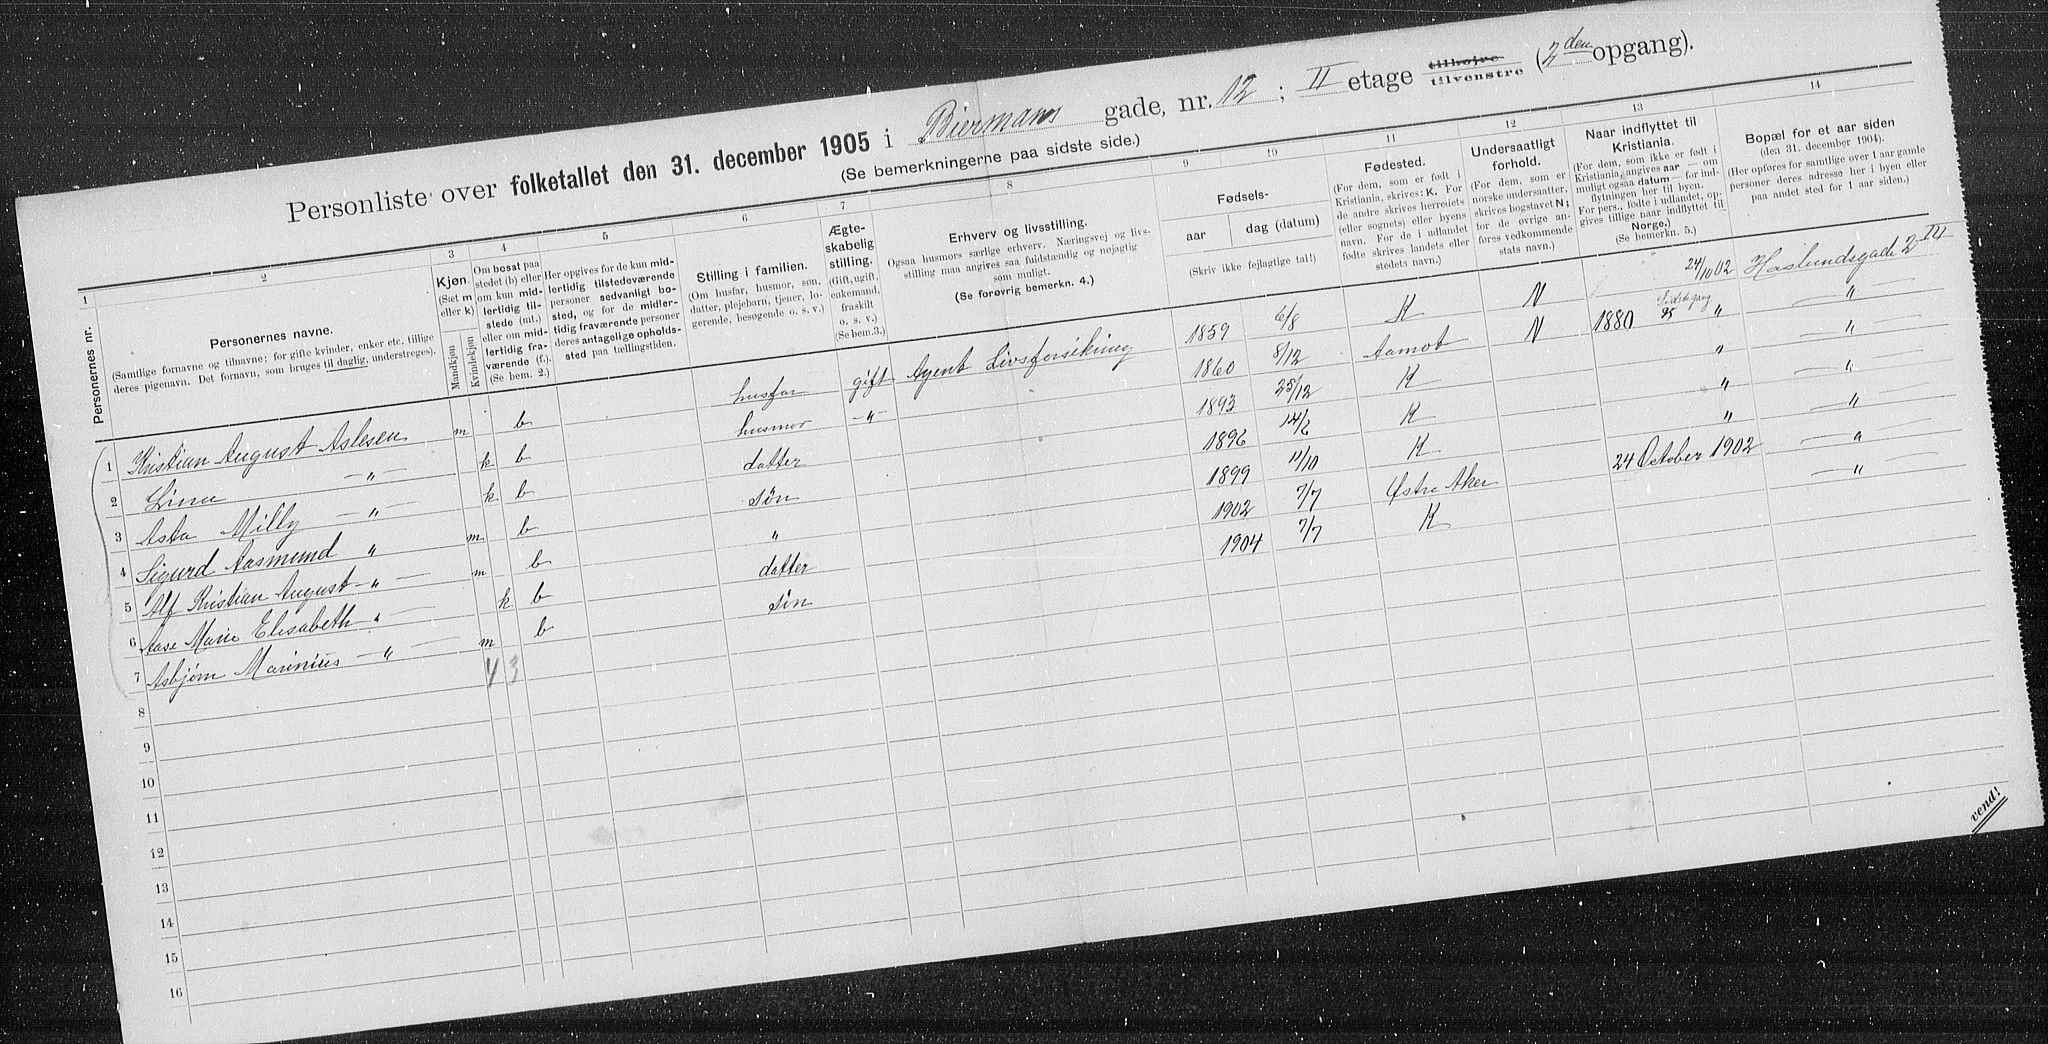 Personliste over folketallet den 31. december 1905 i Biermans gade, nr. 12 ; II etage tilhøjre tilvenstre (2den opgang).
(Se bemerkningerne paa sidste side.)
1 2 3 4 5 6 7 8 9 10 11 12 13 14
Personernes nr.
Personernes navne.
(Samtlige fornavne og tilnavne; for gifte kvinder, enker etc. tillige
deres pigenavn. Det fornavn, som bruges til daglig, understreges).
Kjøn.
(Sæt m
eller k)
Mandkjøn
Kvindekjøn
Om bosat paa
stedet (b) eller
om kun mid-
lertidig til-
stede (mt.)
eller om mid-
lertidig fra-
værende (f.).
(Se bem. 2.)
Her opgives for de kun mid-
lertidig tilstedeværende
personer sedvanlig bo-
sted, og for de midler-
tidig fraværende personer
deres antagelige opholds-
sted paa tællingstiden.
Stilling i familien.
(Om husfar, husmor, søn,
datter, plejebarn, tjener, lo-
gerende, besøgende o. s. v.)
Ægte-
skabelig
stilling.
(Gift, ugift,
enkemand,
fraskilt
o. s. v.)
(Se bem. 3.)
Erhverv og livsstilling.
Ogsaa husmors særlige erhverv. Næringsvej og livs-
stilling maa angives saa fuldstændig og nøjagtig
som muligt.
(Se forøvrig bemerkn. 4.)
Fødsels-
aar
dag (datum)
(Skriv ikke fejlagtige tal!)
Fødested.
(For dem, som er født i
Kristiania, skrives: K. For
de andre skrives herredets
(eller sognets) eller byens
navn. For de i udlandet
fødte skrives landets eller
stedets navn.)
Undersaatligt
forhold.
(For dem, som er
norske undersaatter,
skrives bogstavet N;
for de øvrige an-
føres vedkommende
stats navn.)
Naar indflyttet til
Kristiania.
(For dem, som ikke er født i
Kristiania, angives aar — om
muligt ogsaa datum — for ind-
flytningen her til byen.
For pers., fødte i udlandet, op-
gives tillige naar indflyttet til
Norge.)
(Se bemerkn. 5.)
Bopæl for et aar siden
(den 31. december 1904).
(Her opføres for samtlige over 1 aar gamle
personer deres adresse her i byen eller
paa andet sted for 1 aar siden.)
1 Kristian August Aslesen m b husfar gift Agent Livsforsikring 1859 6/8 K N 24/10 02 Haslundsgade 2 III
2 Lina — " — k b husmor — " — 1860 8/12 Aamot N 1880 Sidstegang 95 " — " —
3 Asta Milly — " — k b datter 1893 25/12 K " — " —
4 Sigurd Aasmund " m b søn 1896 14/6 K " — " —
5 Alf Kristian August — " — m b " 1899 11/10 K " — " —
6 Aase Marie Elisabeth " — k b datter 1902 7/7 Østre Aker 24 October 1902 — " —
7 Asbjørn Marinius — " — m b søn 1904 7/7 K — " —
4 3
8
9
10
11
12
13
14
15
16
vend!